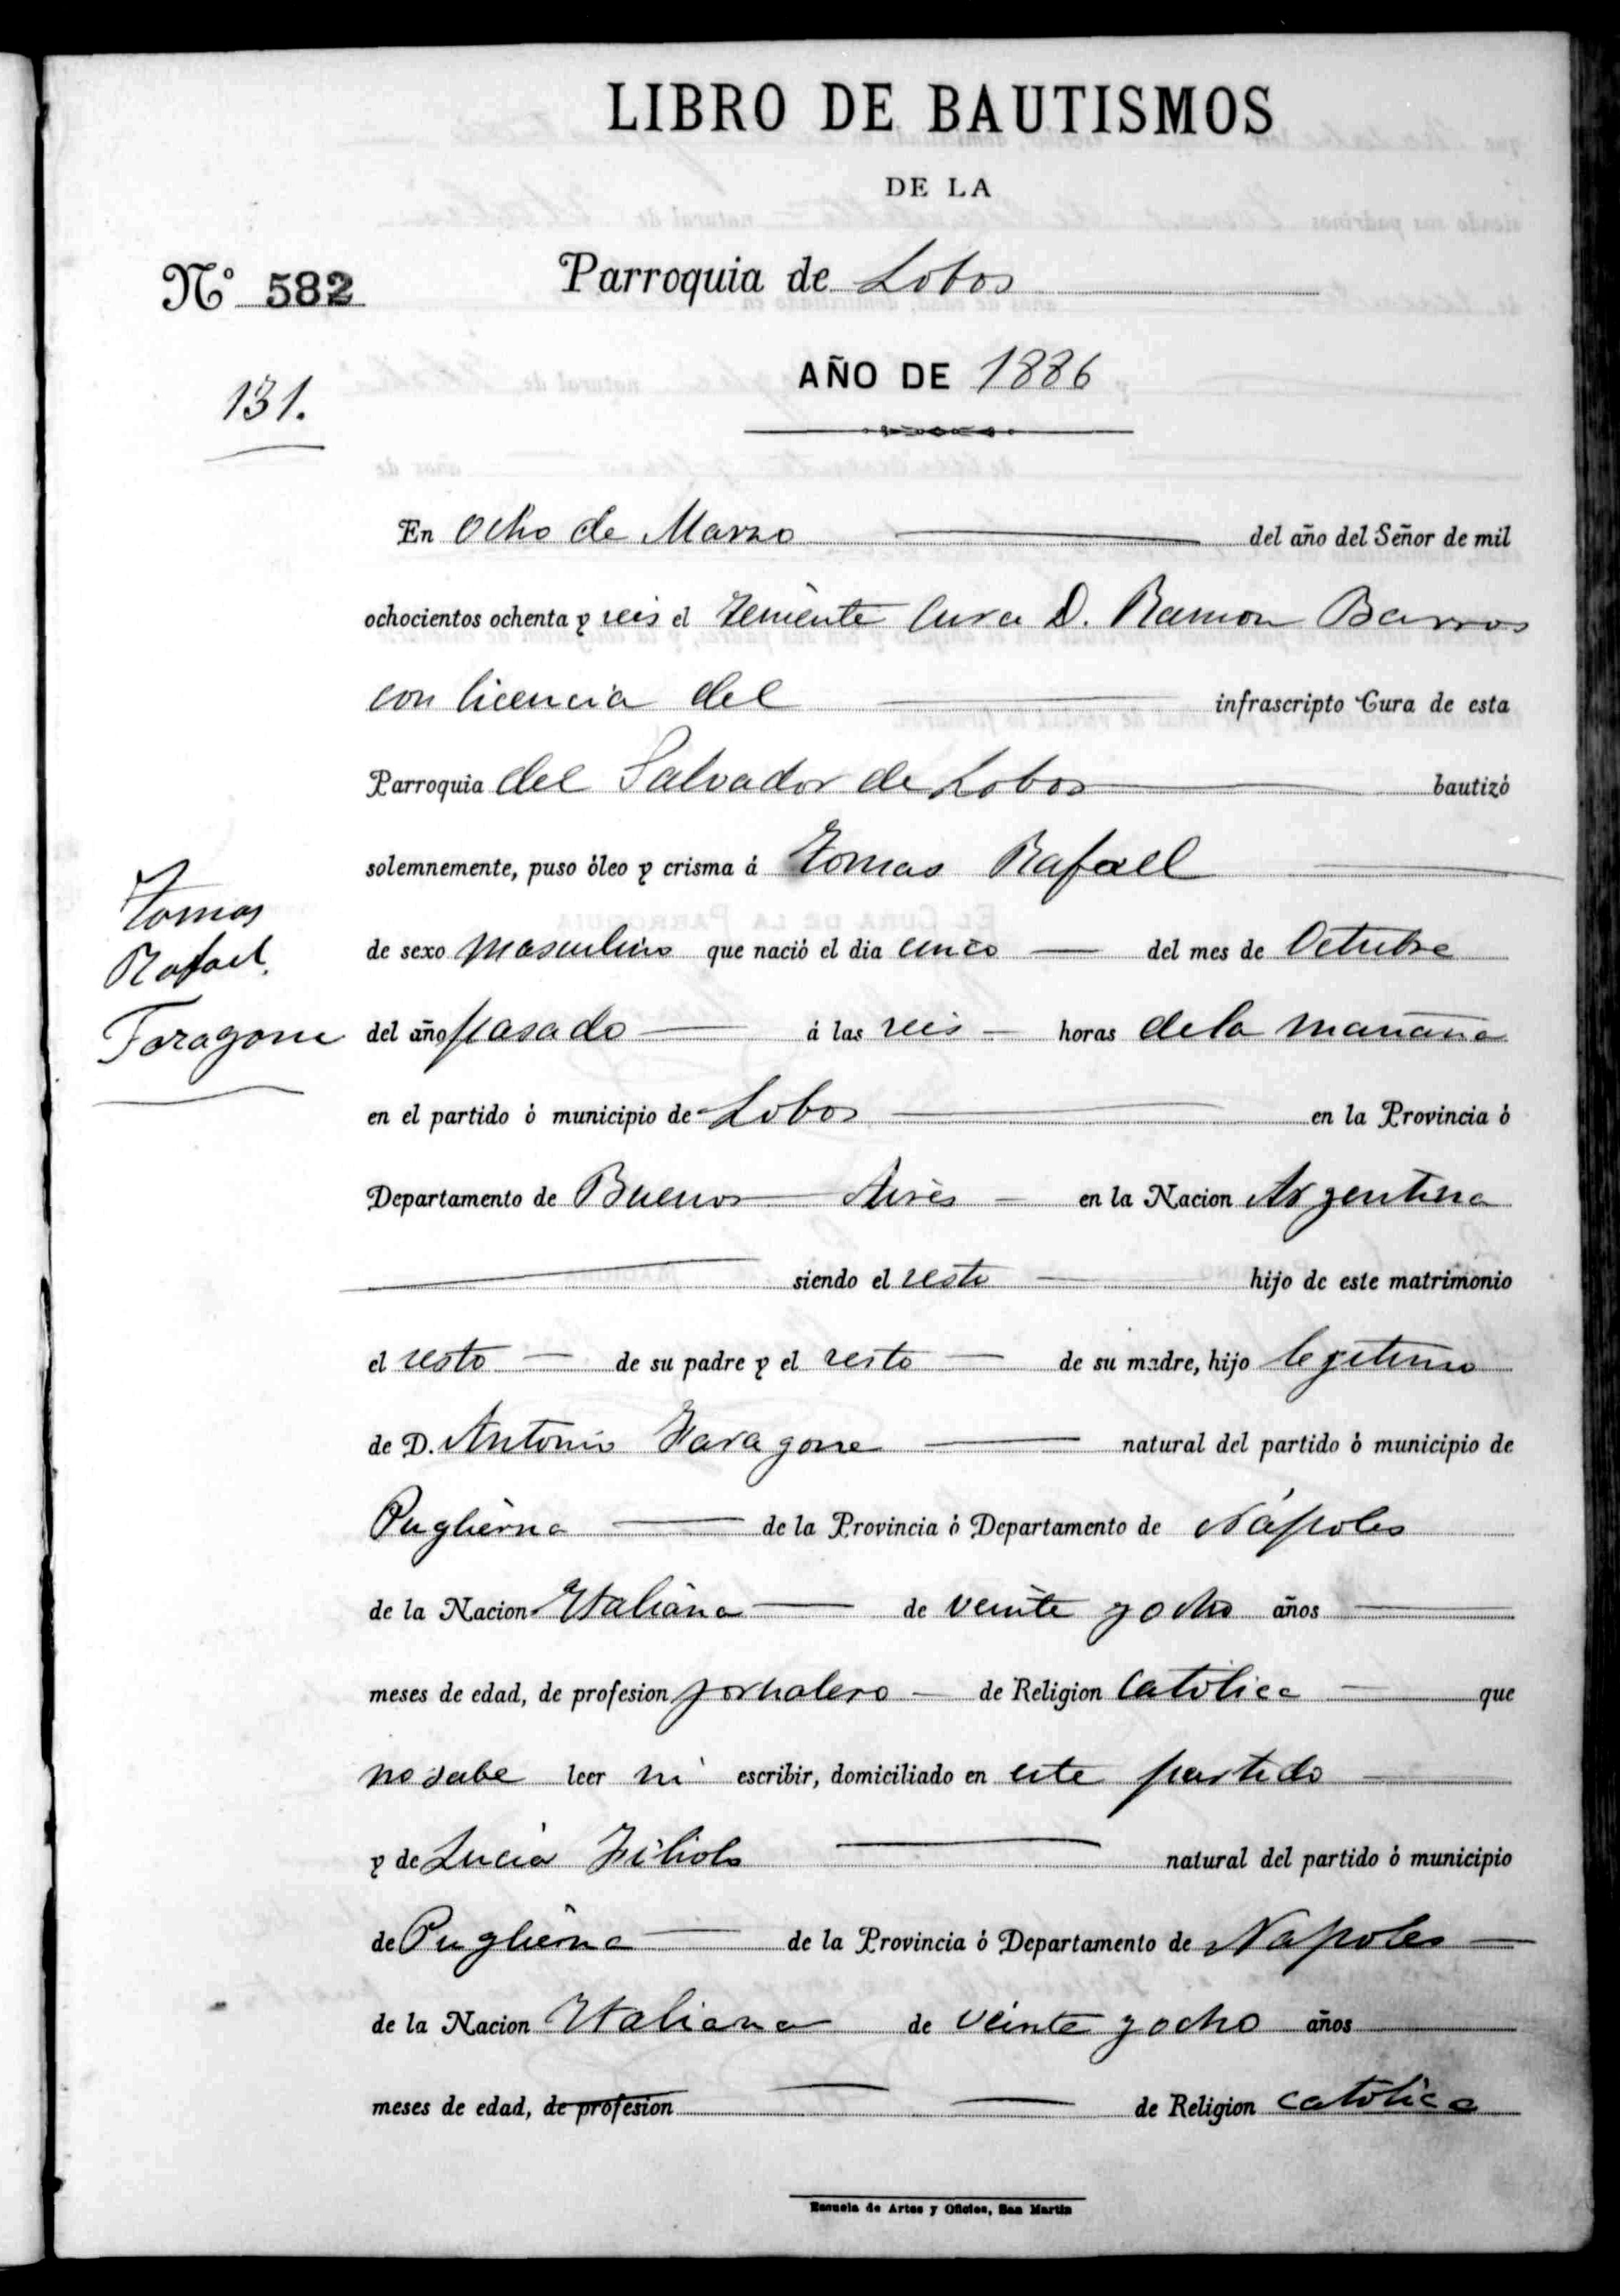 LIBRO DE BAUTISMOS
DE LA
Nº 582
Parroquia de Lobos
AÑO DE 1886
131.
En Ocho de Marzo del año del Señor de mil
ochocientos ochenta y seis el Teniente Cura D. Ramon Barros
con licencia del infrascripto Cura de esta
Parroquia del Salvador de Lobos bautizó
solemnemente, puso óleo y crisma á Tomas Rafael
Tomas
Rafael
Faragone
de sexo masculino que nació el dia cinco del mes de Octubre
del año pasado á las seis horas de la mañana
en el partido ó municipio de Lobos en la Provincia ó
Departamento de Buenos Aires en la Nacion Argentina
siendo el sesto hijo de este matrimonio
el sesto de su padre y el sesto de su madre, hijo legitimo
de D. Antonio Faragone natural del partido ó municipio de
Puglierna de la Provincia ó Departamento de Nápoles
de la Nacion Italiana de veinte y ocho años
meses de edad, de profesion jornalero de Religion Católica que
no sabe leer ni escribir, domiciliado en este partido
y de Lucia Filiolo natural del partido ó municipio
de Puglierna de la Provincia ó Departamento de Napoles
de la Nacion Italiana de veinte y ocho años
meses de edad, de profesion de Religion católica
Escuela de Artes y Oficios, San Martin